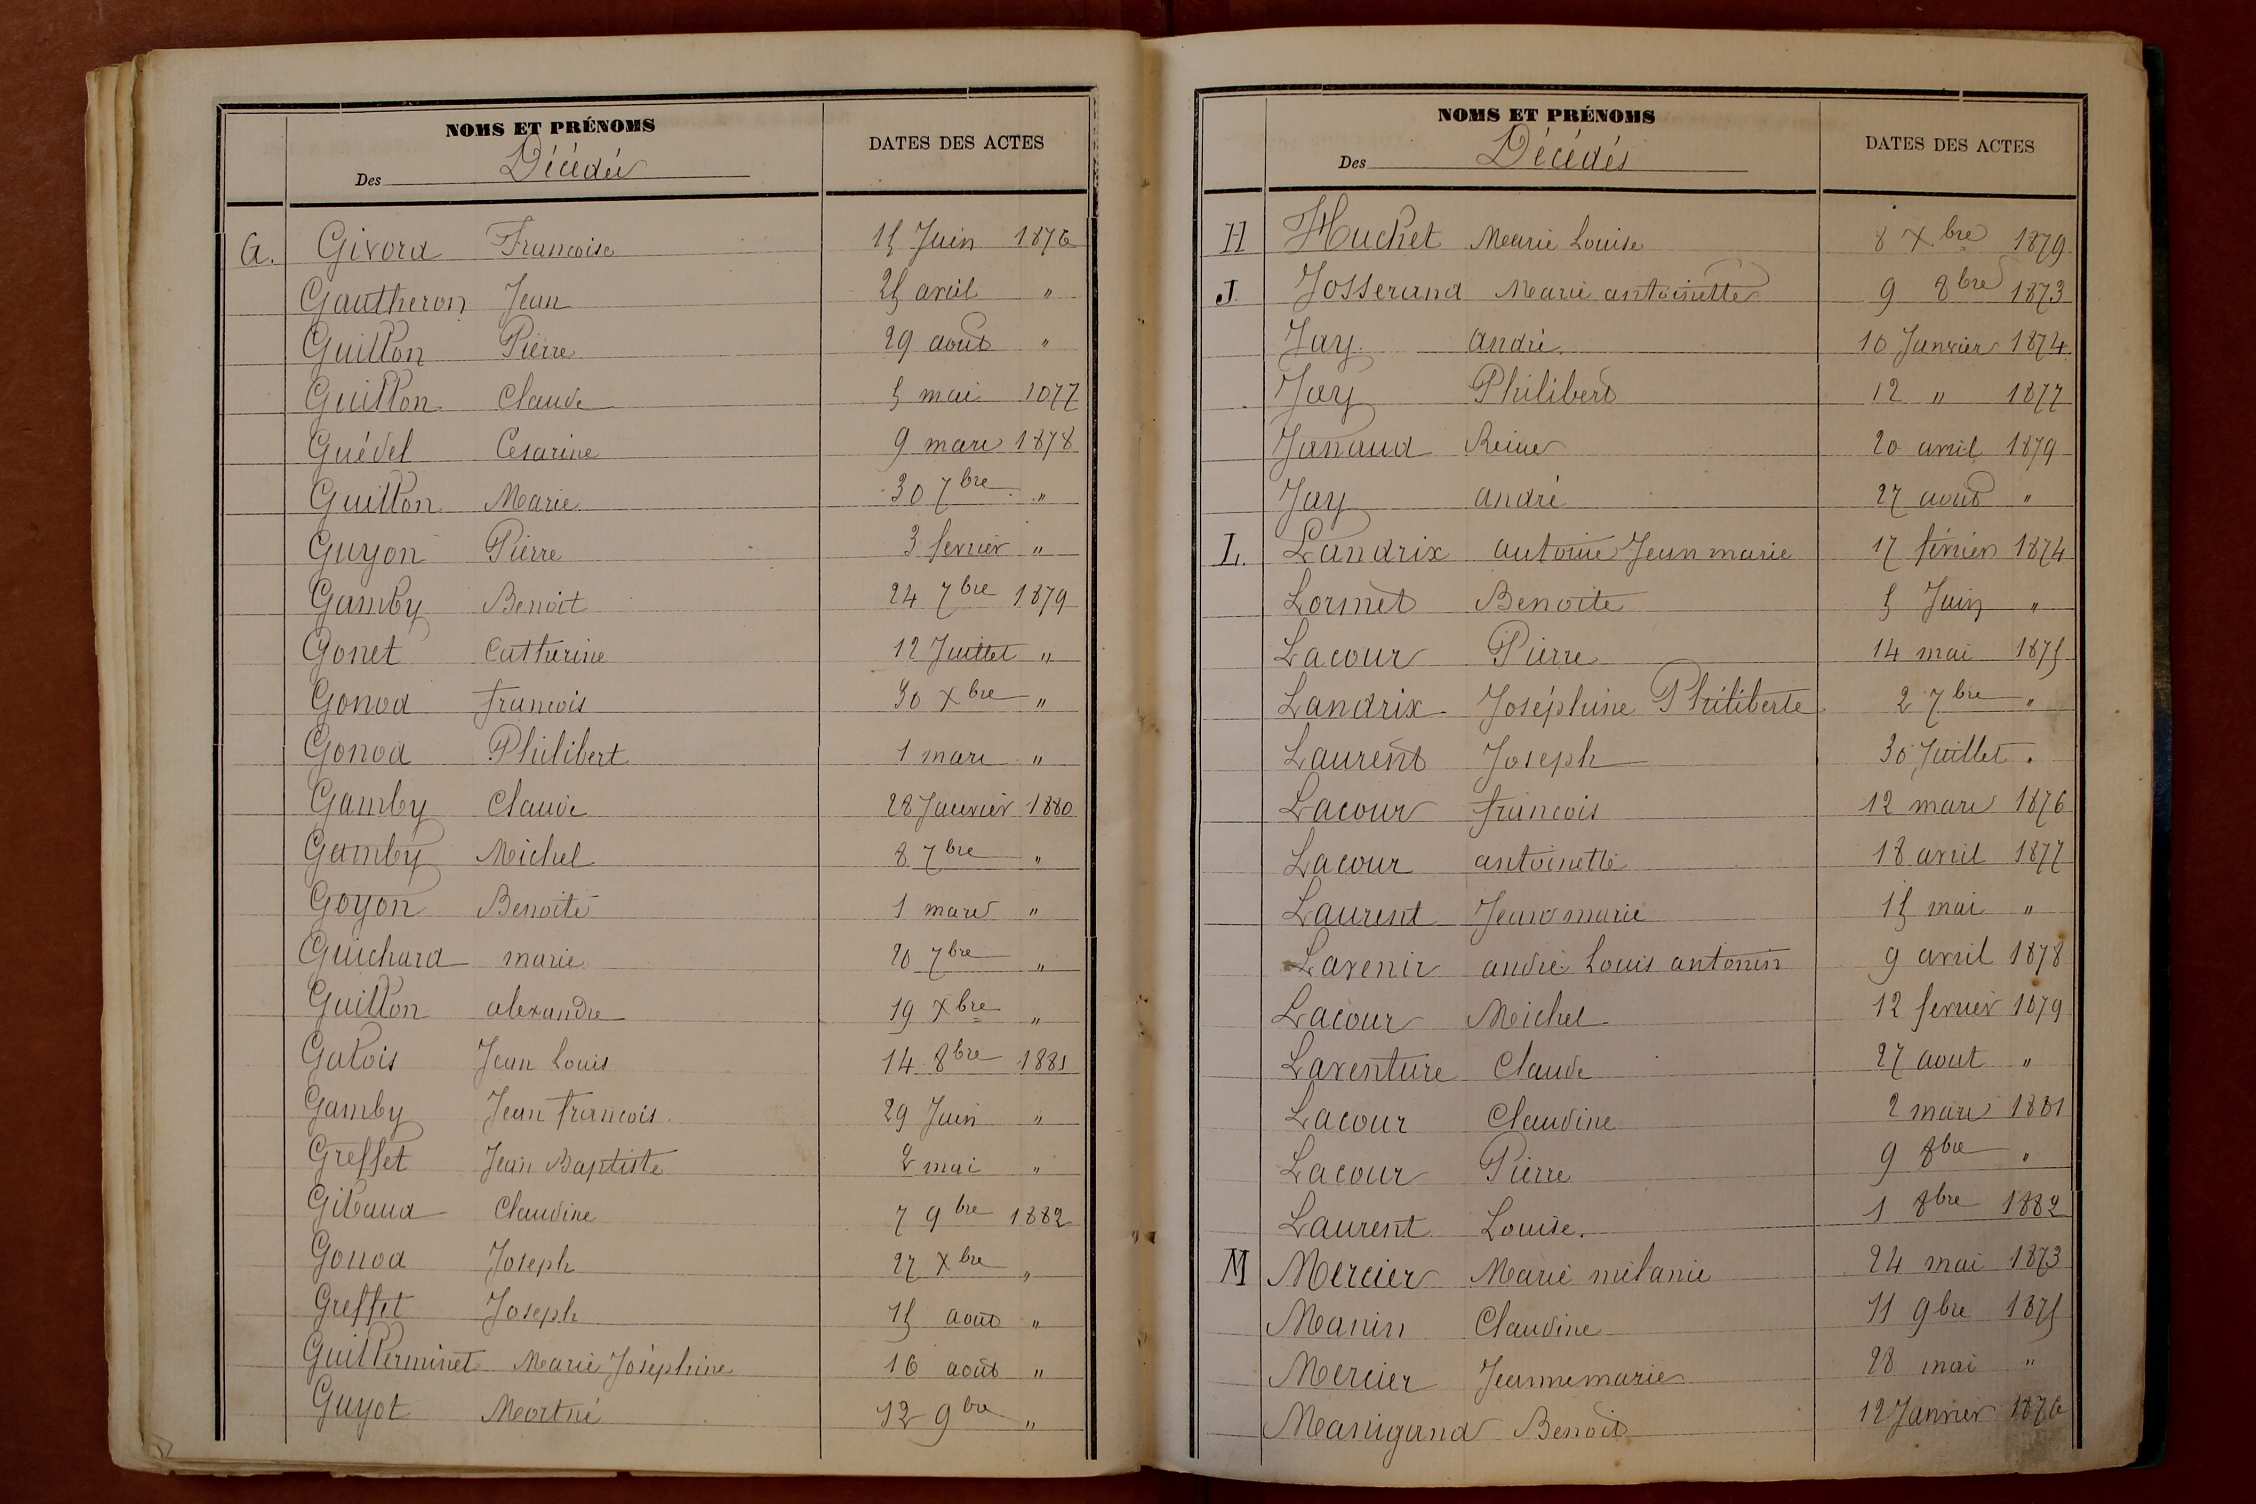 NOMS ET PRÉNOMS
Des Décédés
DATES DES ACTES
G. Givord Francoise 15 Juin 1876
Gautheron Jean 25 avril "
Guillon Pierre 29 août "
Guillon Claude 5 mai 1877
Guédel Cesarine 9 mars 1878
Guillon Marie 30 7bre "
Guyon Pierre 3 fevrier "
Gamby Benoit 24 7bre 1879
Gonet Catherine 12 Juillet "
Gonod francois 30 Xbre "
Gonod Philibert 1 mars "
Gamby Claude 28 Janvier 1880
Gamby Michel 8 7bre "
Goyon Benoite 1 mars "
Guichard marie 20 7bre "
Guillon alexandre 19 Xbre "
Galois Jean Louis 14 8bre 1881
Gamby Jean francois 29 Juin "
Greffet Jean Baptiste 2 mai "
Gibaud Claudine 7 9bre 1882
Gonod Joseph 27 Xbre "
Greffet Joseph 15 août "
Guillerminet Marie Joséphine 16 août "
Guyot Mortné 12 9bre "
NOMS ET PRÉNOMS
Des Décédés
DATES DES ACTES
H Huchet Marie Louise 8 Xbre 1879
J Josserand Marie antoinette 9 8bre 1873
Jay andré 10 Janvier 1874
Jay Philibert 12 " 1877
Janaud Reine 20 avril 1879
Jay andré 27 août "
L. Landrix antoine Jean marie 17 février 1874
Lormet Benoite 5 Juin "
Lacour Pierre 14 mai 1875
Landrix Joséphine Philiberte 2 7bre "
Laurent Joseph 30 Juillet "
Lacour francois 12 mars 1876
Lacour antoinette 18 avril 1877
Laurent Jean marie 15 mai "
Lavenir andré Louis antonin 9 avril 1878
Lacour Michel 12 fevrier 1879
Laventure Claude 27 aout "
Lacour Claudine 2 mars 1881
Lacour Pierre 9 8bre "
Laurent Louise. 1 8bre 1882
M Mercier Marie mélanie 24 mai 1873
Manin Claudine 11 9bre 1875
Mercier Jeanne marie 28 mai "
Manigand Benoit 12 Janvier 1876